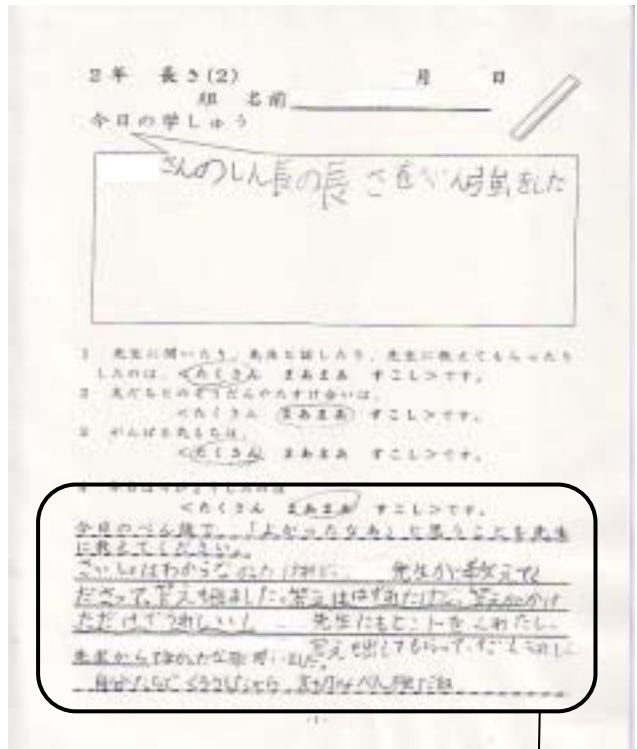 2年 長さ(2) 月 日
組 名前
今日の学しゅう
さんのしん長の長さをべん強をした
1 先生に聞いたり、先生と話したり、先生に教えてもらったり
したのは、<たくさん まあまあ すこし>です。
2 友だちとのそうだんやたすけ合いは、
<たくさん まあまあ すこし>です。
3 がんばる気もちは、
<たくさん まあまあ すこし>です。
4 今日は
<たくさん まあまあ すこし>です。
今日のべん強で、「よかったなあ」と思うことを先生
に教えてください。
さいしょはわからなかったけれど、 先生が教えてく
ださって、答えを出ました。答えははずれたけど、答えがかけ
ただけでうれしいし 先生にもヒントをくれたし、
答えを出してもらって、すごくうれし
先生から
自分たちで べん強だね
-1-